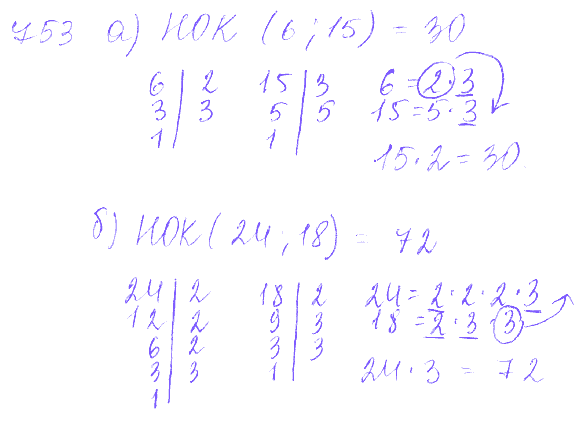 753 а) НОК (6 ; 15) = 30
6 | 2 15 | 3 6 = 2 · 3
3 | 3 5 | 5 15 = 5 · 3
1 | 1 |
15 · 2 = 30
б) НОК ( 24 ; 18) = 72
24 | 2 18 | 2 24 = 2 · 2 · 2 · 3
12 | 2 9 | 3 18 = 2 · 3 · 3
6 | 2 3 | 3
3 | 3 1 | 24 · 3 = 72
1 |